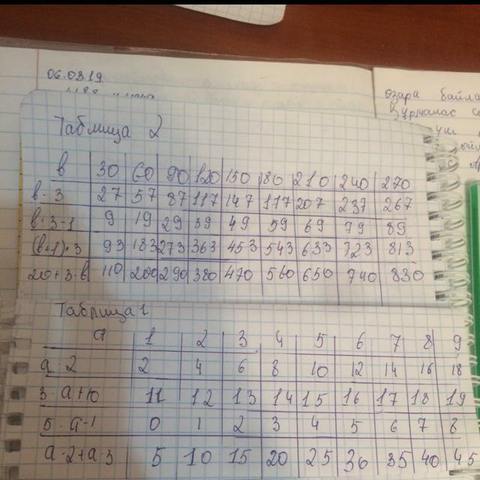 06.03.19
озара байла
Таблица 2
в 30 60 90 120 150 180 210 240 270
в - 3 27 57 87 117 147 117 207 237 267
в : 3 - 1 9 19 29 39 49 59 69 79 89
(в+1)·3 93 183 273 363 453 543 633 723 813
20+3·в 110 200 290 380 470 560 650 740 830
Таблица 1
а 1 2 3 4 5 6 7 8 9
а · 2 2 4 6 8 10 12 14 16 18
3 а+10 11 12 13 14 15 16 17 18 19
5 · а-1 0 1 2 3 4 5 6 7 8
а·2+а·3 5 10 15 20 25 30 35 40 45